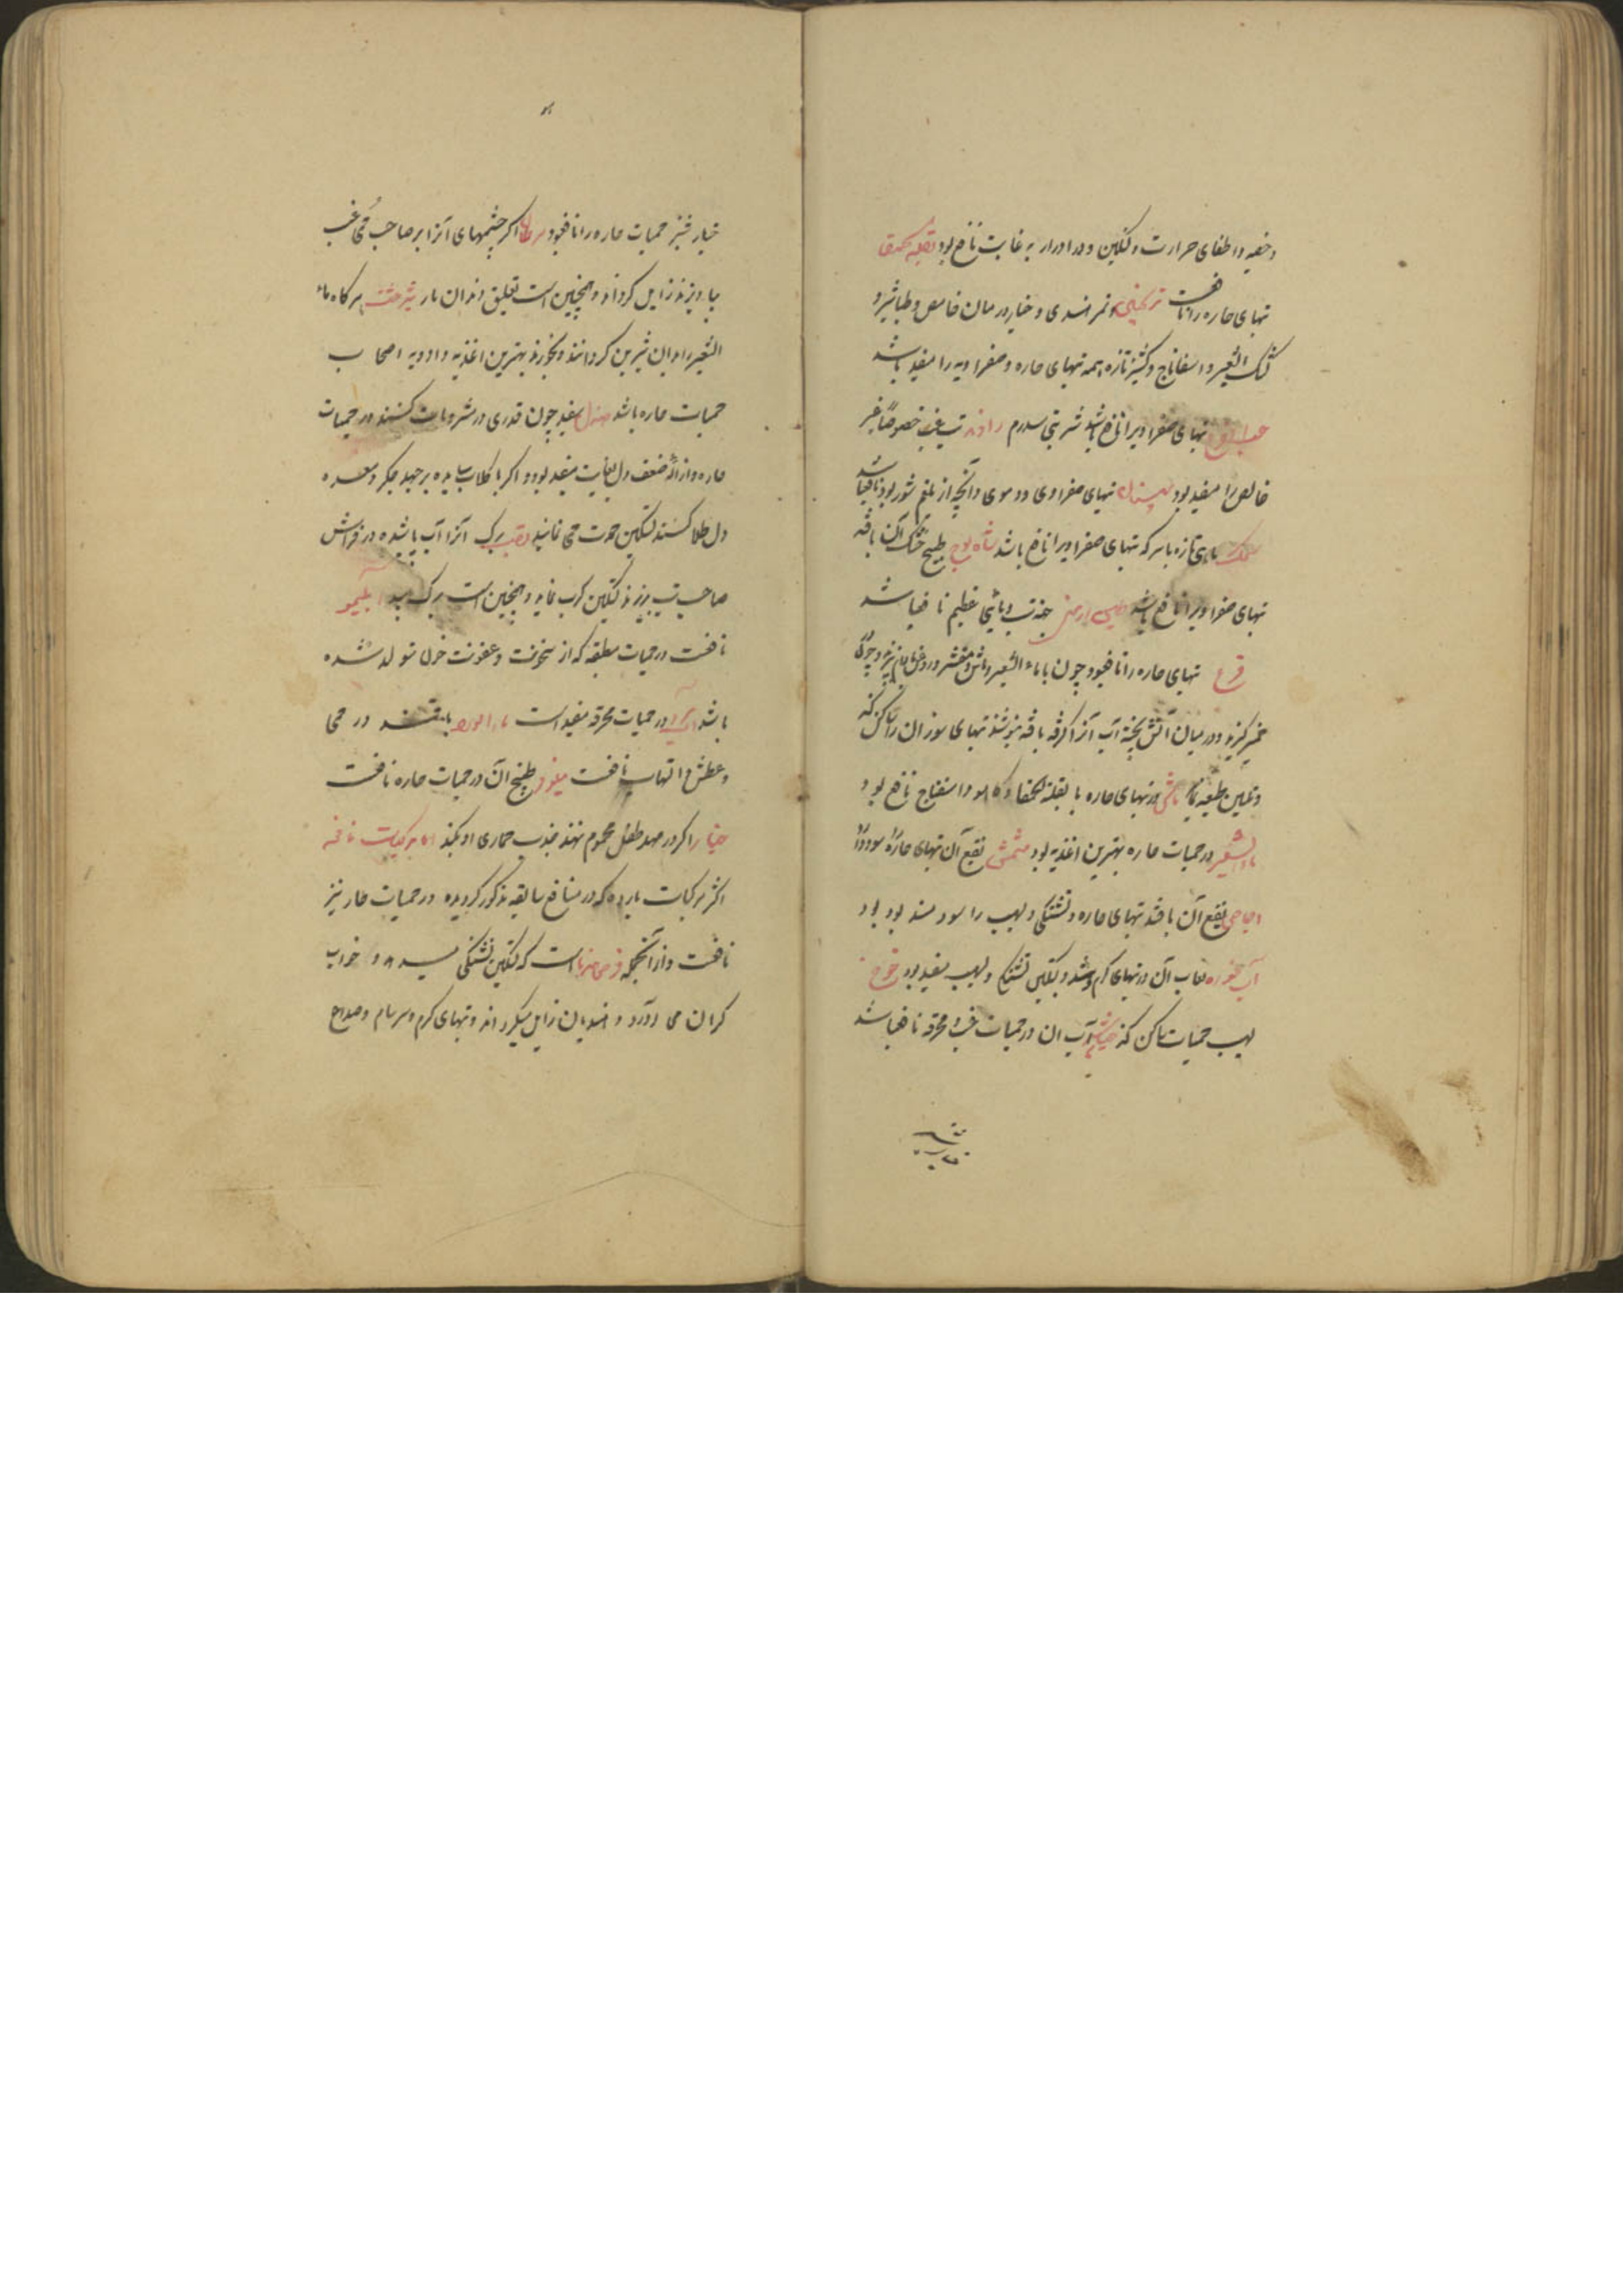 و اطفای حرارت و تسکین و در ادرار به غایت نافع بود
تبهای حاره را نافعست ترنجبین و تمر هندی و خیار و رمان حامض و طباشیر و
کشک الشعیر و اسفاناج و کشنیز تازه همه تبهای حاره و صفراویه را مفید باشد
تبهای صفراویرا نافع باشد شربتی سه درم تب غب خصوصاً غیر
خالص را مفید بود تبهای صفراوی و دموی و آنچه از بلغم شور بود نافع باشد
سمک تازه با سرکه تبهای صفراویرا نافع باشد طبیخ خشک آن با قند
تبهای صفراویرا نافع باشد جهة تب وبائی عظیم نافع باشد
قرع تبهای حاره را نافع بود چون با ماء الشعیر و ماش مقشر و روغن بادام پزند و چون در
خمیر گیرند و در میان آتش پخته آب آنرا گرفته با قند بنوشند تبهای سوزان را ساکن کند
و تلیین طبیعه نماید ماش در تبهای حاره با بقلة الحمقا و کاهو و اسفناج نافع بود
ماء الشعیر در حمیات حاره بهترین اغذیه بود مشمش نقیع آن تبهای حاره را سود دارد
اجاص نقیع آن با قند تبهای حاره و تشنگی و لهیب را سودمند بود
لعاب آن در تبهای گرم و تسکین تشنگی و لهیب مفید بود خوخ
لهیب حمیات ساکن کند آب ان در حمیات غب و محرقه نافع باشد
خیار شنبر حمیات حاره را نافع بود سرطان اگر چشمهای آنرا بر صاحب حمی غب
بیاویزند زایل گرداند و همچنین است تعلیق دندان مار شیرخشت هرگاه ماء
الشعیر را بدان شیرین گردانند و بخورند بهترین اغذیه و ادویه اصحاب
حمیات حاره باشد صندل سفید چون قدری در مشروبات کنند در حمیات
حاره و ازاله ضعف دل بغایت مفید بود و اگر با گلاب ساییده بر جبهه و جگر و معده
دل طلا کنند تسکین حدت می نماید قصب برگ آنرا آب پاشیده در فراش
صاحب تب ریزند تسکین کرب نماید و همچنین است برگ بید آب لیمو
نافعست در حمیات مطبقه که از سخونت و عفونت خون متولد شده
باشد در حمیات محرقه مفید است ماء الورد با قند در حمی
و عطش و التهاب نافعست نیلوفر طبیخ آن در حمیات حاره نافعست
خیار را اگر در مهد طفل محموم نهند جذب حماری او بکند اما مرکبات نافعه
اکثر مرکبات بارده که در منافع سابقه مذکور گردیده در حمیات حار نیز
نافعست و از آنجمله قرص است که تسکین تشنگی میدهد و خواب
گران می آورد و هذیان زایل میگرداند و تبهای گرم و سرسام و صداع